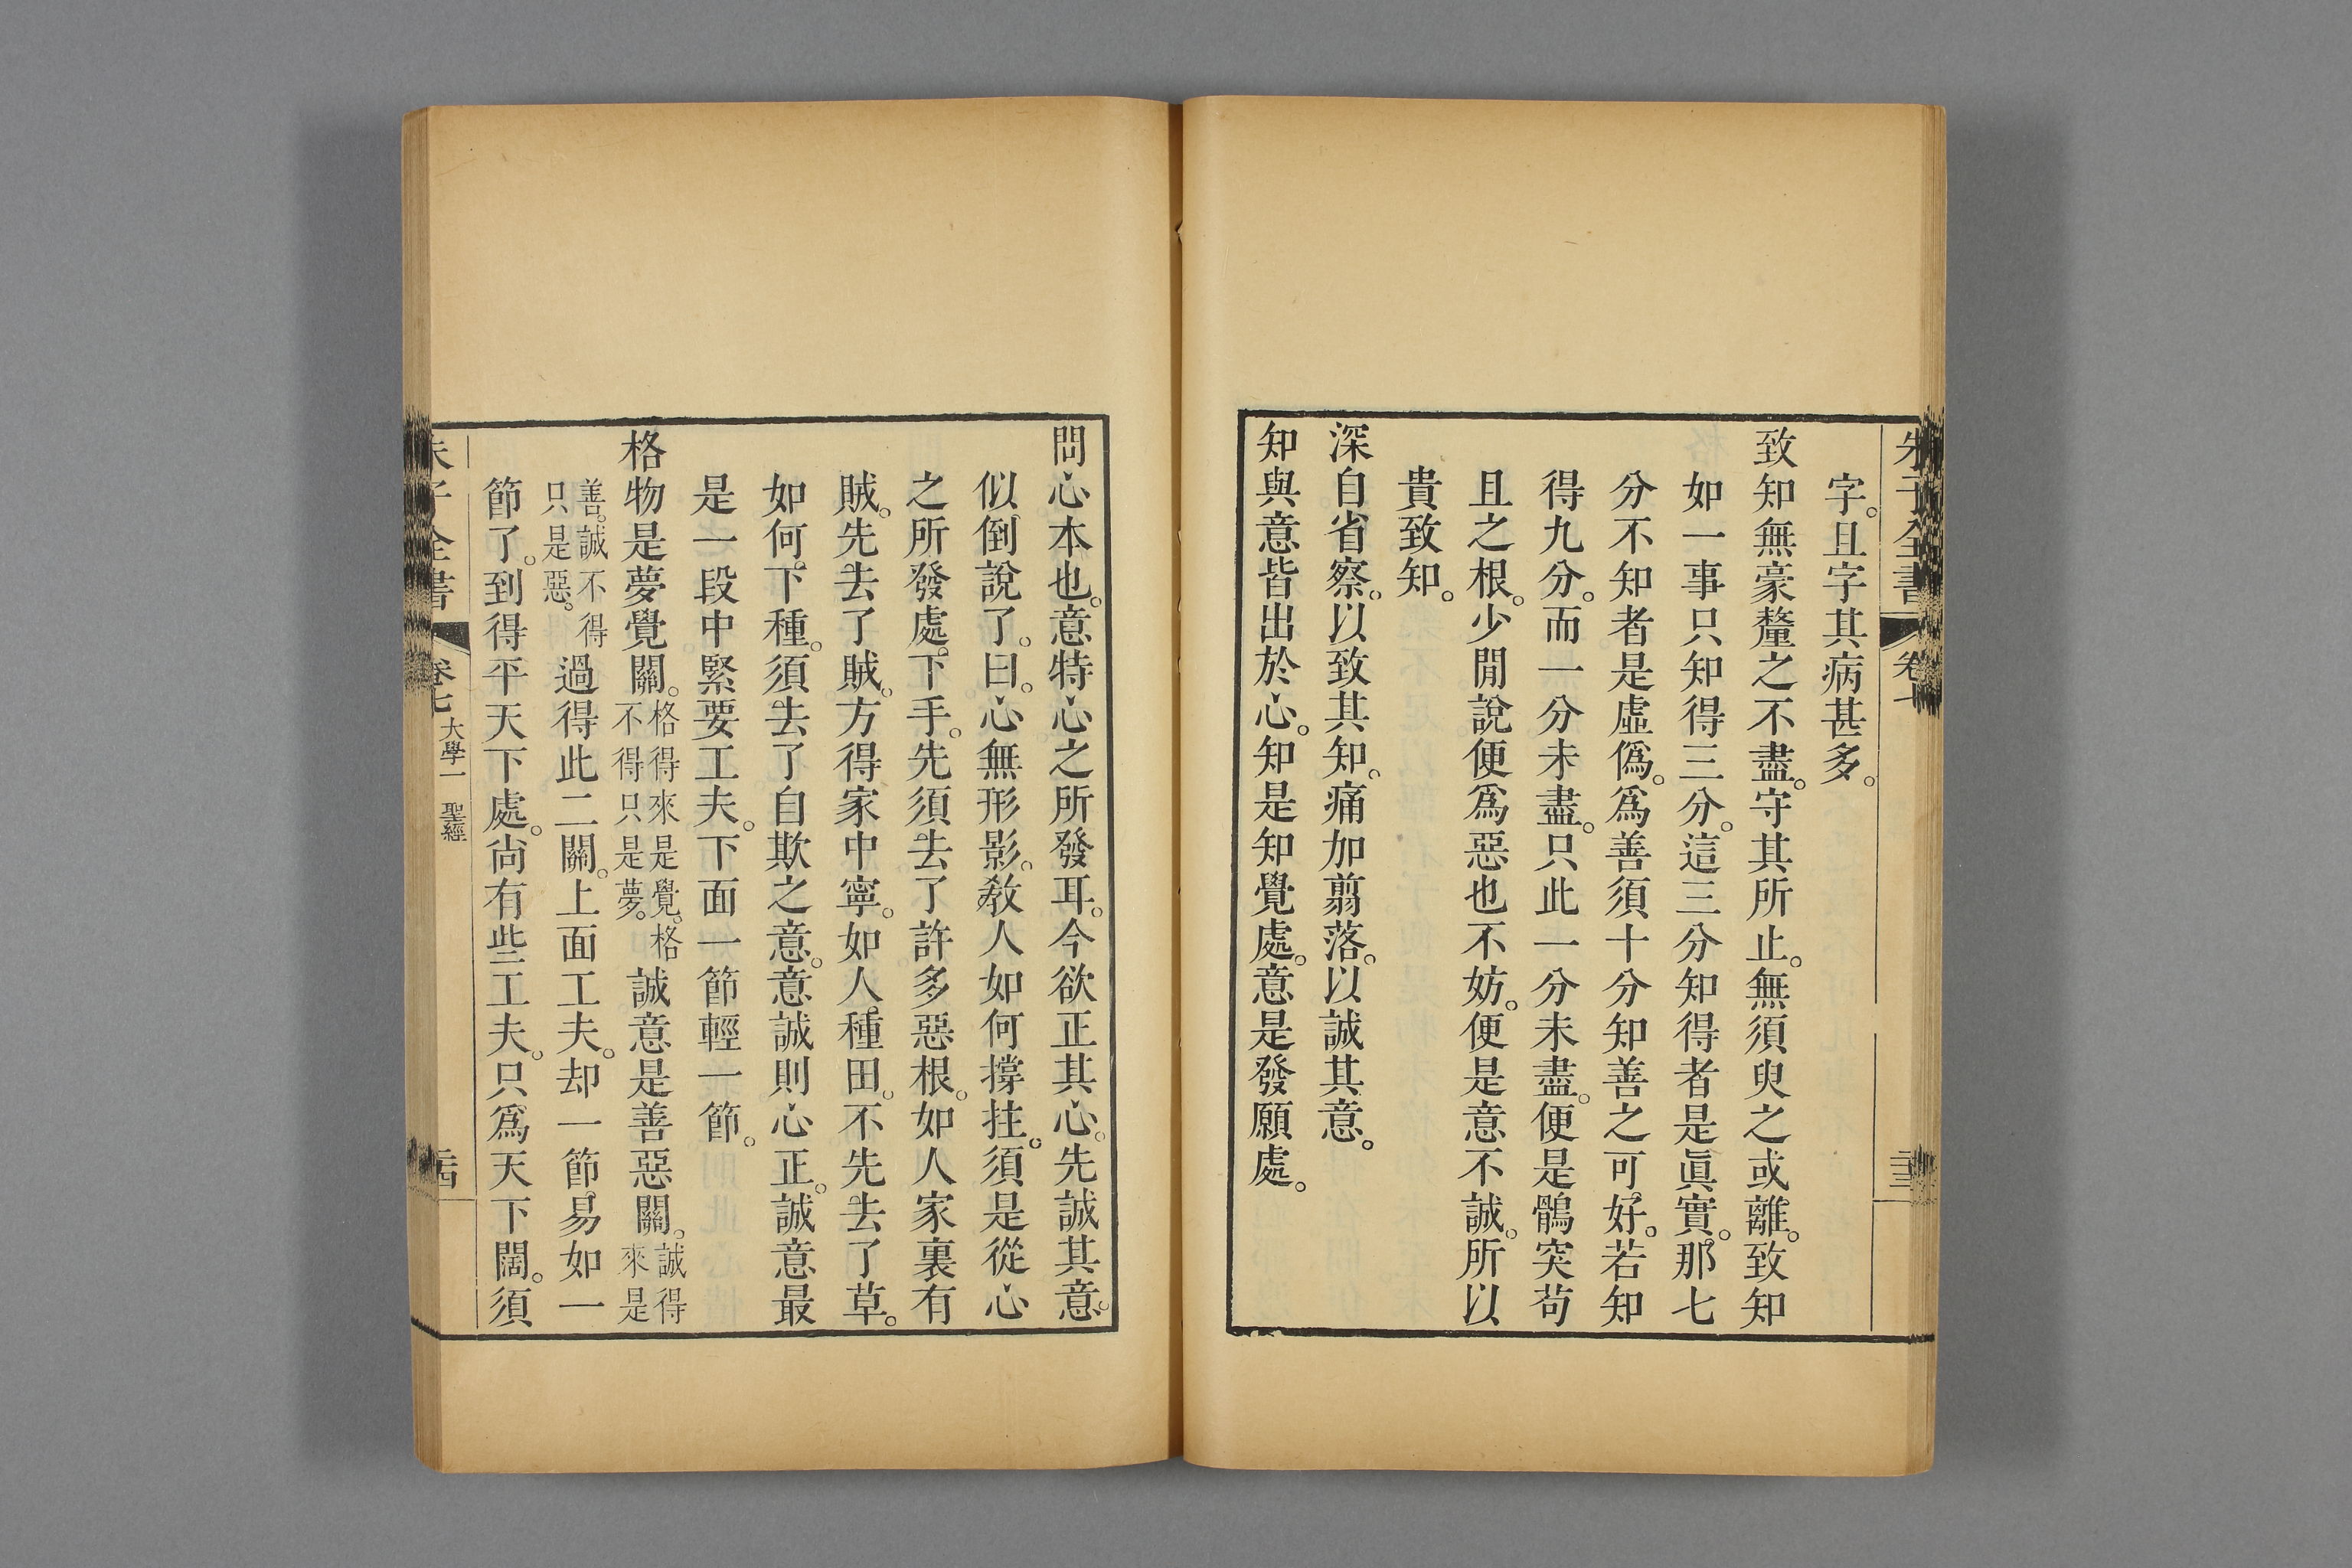 朱子全書 卷七
字。且字其病甚多。
致知無毫釐之不盡。守其所止。無須臾之或離。致知
如一事只知得三分。這三分知得者是眞實。那七
分不知者是虛僞。爲善須十分知善之可好。若知
得九分。而一分未盡。只此一分未盡。便是鶻突苟
且之根。少閒說便爲惡也不妨。便是意不誠。所以
貴致知。
深自省察。以致其知。痛加剪落。以誠其意。
知與意皆出於心。知是知覺處。意是發願處。
問心本也。意特心之所發耳。今欲正其心。先誠其意。
似倒說了。曰。心無形影。敎人如何撐拄。須是從心
之所發處。下手。先須去了許多惡根。如人家裏有
賊。先去了賊。方得家中寧。如人種田。不先去了草。
如何下種。須去了自欺之意。意誠則心正。誠意最
是一段中緊要工夫。下面一節輕一節。
格物是夢覺關。格得來是覺。格不得只是夢。誠意是善惡關。誠得來是
善。誠不得只是惡。過得此二關。上面工夫。却一節易如一
節了。到得平天下處。尙有些工夫。只爲天下闊。須
朱子全書 卷七 大學一 聖經